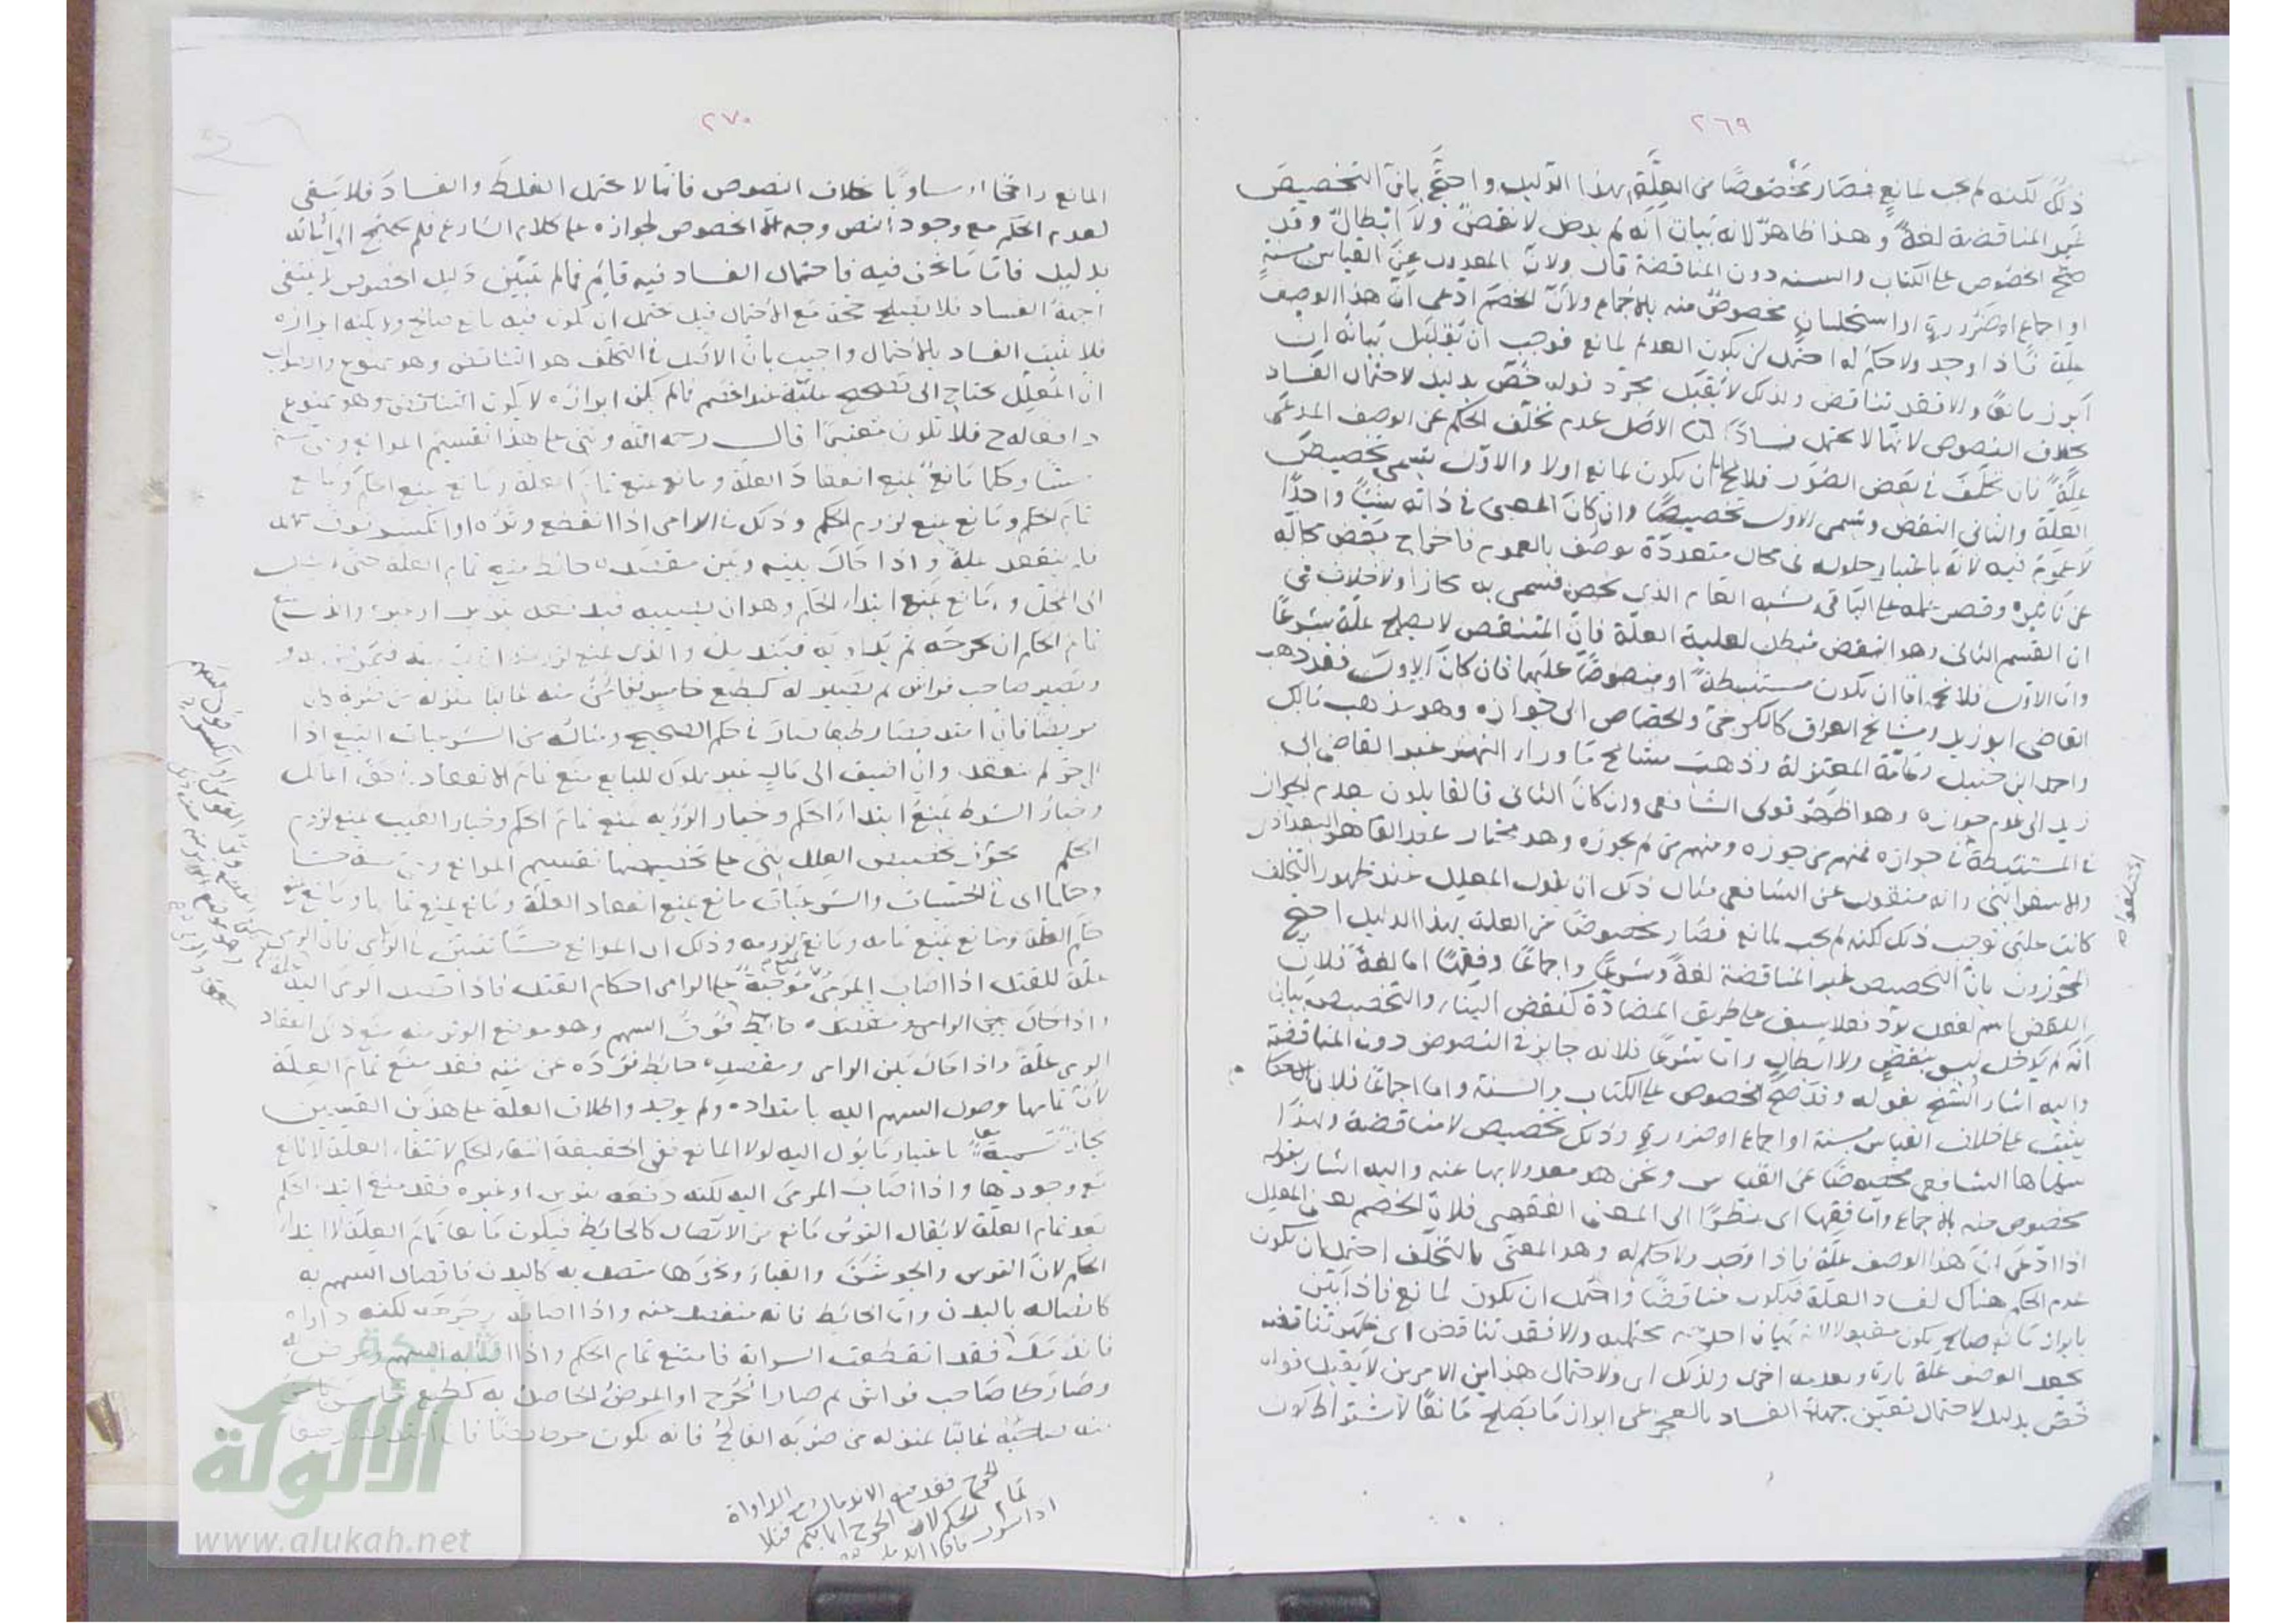 ٢٦٩
ذلك لكنه لم يجب لمانع فصار مخصوصًا من العلة بهذا الدليل واحتج بان التخصيص
غير المناقضة لغة وهذا ظاهر لانه بيان انه لم يدخل لا نقض ولا ابطال وقد
صح الخصوص على الكتاب والسنة دون المناقضة قال ولان المعدول عن القياس بسنة
او اجماع او ضرورة او استحسان مخصوص منه بالاجماع ولان الخصم ادعى ان هذا الوصف
علة فاذا وجد ولا حكم له احتمل ان يكون العدم لمانع فوجب ان يقبل بيانه ان
ابرز مانعًا والا فقد تناقض ولذلك لا يقبل مجرد قوله خص بدليل لاحتمال الفساد
بخلاف النصوص لانها لا يحتمل فسادًا الاصل عدم تخلف الحكم عن الوصف المدعى
علة فان تخلف في بعض الصور فلا يخ اما ان يكون لمانع اولا والاول يسمى تخصيص
العلة والثاني النقض ويسمى الاول تخصيصًا وان كان المعنى في ذاته شيئًا واحدًا
لا عموم فيه لانه باعتبار حلوله في محال متعددة يوصف بالعموم فاخراج بعض محاله
عن تاثيره وقصر عمله على الباقي يشبه العام الذي يخص فسمى به مجازا ولا خلاف في
ان القسم الثاني وهو النقض مبطل لعلية العلة فان المتنقض لا يصلح علة شرعًا
واما الاول فلا يخ اما ان يكون مستنبطة او منصوصًا عليها فان كان الاول فقد ذهب
القاضي ابو زيد ومشائخ العراق كالكرخي والجصاص الى جوازه وهو مذهب مالك
واحمد ابن حنبل وعامة المعتزلة وذهب مشائخ ما وراء النهر غير القاضي ابي
زيد الى عدم جوازه وهو اظهر قولي الشافعي وان كان الثاني فالقايلون بعدم الجواز
في المستنبطة في جوازه فمنهم من جوزه ومنهم من لم يجوزه وهو مختار عبد القاهر البغدادي
والاسفرائني وانه منقول عن الشافعي مثال ذلك ان يقول المعلل عند ظهور التخلف
كانت علتي توجب ذلك لكنه لم يجب لمانع فصار مخصوصًا من العلة بهذا الدليل احتج
المجوزون بان التخصيص غير المناقضة لغة وشرعًا واجماعًا وفقهًا اما لغة فلان
النقض اسم لفعل يرد فعلا سبق على طريق المضادة كنقض البناء والتخصيص بيان
انه لم يدخل ليس بنقض ولا ابطال واما شرعًا فلانه جايز في النصوص دون المناقضة
واليه اشار الشيخ بقوله وقد صح الخصوص على الكتاب والسنة واما اجماعًا فلان
يثبت على خلاف القياس بسنة او اجماع او ضرورة وذلك تخصيص لا مناقضة ولهذا
سماها الشافعي مخصوصًا عن القياس ونحن هو معدولا بها عنه واليه اشار بقوله
مخصوص منه بالاجماع واما فقهًا اى نظرًا الى المعنى الفقهى فلان الخصم يعنى المعلل
اذا ادعى ان هذا الوصف علة فاذا وجد ولا حكم له وهو المعنى بالتخلف احتمل ان يكون
عدم الحكم هناك لفساد العلة فيكون متناقضًا واحتمل ان يكون لمانع فاذا بين
بابراز مانع صالح يكون مقبولا لانه بيان احد محتمليه والا فقد تناقض اى ظهر تناقضه
بجعل الوصف علة تارة وبعدمه اخرى ولذلك اى ولاحتمال هذين الامرين لا يقبل قوله
خص بدليل لاحتمال تعين جهة الفساد بالعجز على ابراز ما يصلح مانعًا لاشتراط كون
اختلفوا
٢٧٠
المانع راجحًا او مساويًا بخلاف النصوص فانها لا يحتمل الغلط والفساد فلا يبقى
لعدم الحكم مع وجود النص وجه الا الخصوص لجوازه على كلام الشارع فلم يحتج الى اثباته
بدليل فاما ما نحن فيه فاحتمال الفساد فيه قائم فما لم يتبين دليل الخصوص لم ينتفى
جهة الفساد فلا يصلح حجة مع الاحتمال قيل يحتمل ان يكون فيه مانع صالح ولم يمكنه ابرازه
فلا يثبت الفساد بالاحتمال واجيب بان الاصل في التخلف هو التناقض وهو ممنوع والجواب
ان المعلل يحتاج الى تصحيح علته عند الخصم فما لم يكن ابرازه لا يكون التناقض وهو ممنوع
دافعا له ح فلا تكون معتبرًا قال رحمه الله وبنى على هذا تقسيم الموانع وهى خمسة
حسًا وحكما مانع يمنع انعقاد العلة ومانع يمنع تمام العلة ومانع يمنع الحكم ومانع
تمام الحكم ومانع يمنع لزوم الحكم وذلك في الرامى اذا انقطع وتره او انكسر فوق سهمه
فلم ينعقد علة واذا حال بينه وبين مقصده حائط منع تمام العلة حتى لم يصل
الى المحل ومانع يمنع ابتداء الحكم وهو ان يصيبه فيدفعه بترس او غيره والذي يمنع
تمام الحكم ان يجرحه ثم يداويه فيندمل والذي يمنع لزومه ان يصيبه فيمرض به
ويصير صاحب فراش ثم يصير له كطبع خامس فيأمن منه غالبا بمنزلة من ضربه
مريضا فان امتد فصار طبعا صار في حكم الصحيح ومثاله من الشرعيات البيع اذا
الى حر لم ينعقد وان اضيف الى مال غير مملوك للبايع منع تمام الانعقاد في حق المالك
وخيار الشرط يمنع ابتداء الحكم وخيار الرؤية يمنع تمام الحكم وخيار العيب يمنع لزوم
الحكم يجوز تخصيص العلل بنى على تخصيصها تقسيم الموانع وهى خمسة حسًا
وحكما اى في الحسيات والشرعيات مانع يمنع انعقاد العلة ومانع يمنع تمامها ومانع يمنع
حكم العلة ومانع يمنع تمامه ومانع يمنع لزومه وذلك ان الموانع حسًا تتبين في الرامى فان الرمى
علة للقتل اذا اصاب المرمى موجبة على الرامى احكام القتل فاذا قصد الرمى
واذا حال بين الرامى ومقصده حائط فوق السهم وهو موضع الوتر منه منع ذلك انعقاد
الرمى علة واذا حال بين الرامى ومقصده حائط فرده عن سننه فقد منع تمام العلة
لان تمامها وصول السهم اليه بامتداده ولم يوجد واطلاق العلة على هذين القسمين
مجاز تسمية باعتبار ما يؤل اليه لولا المانع ففى الحقيقة انتفاء الحكم لانتفاء العلة لا لمانع
مع وجودها واذا اصاب المرمى اليه لكنه دفعه بترس او غيره فقد منع ابتداء الحكم
بعد تمام العلة لا يقال الترس مانع من الاتصال كالحائط فيكون مانعا تمام العلة لا ابتداء
الحكم لان الترس والجوشن والقباء ونحوها متصل به كالبدن فاتصال السهم به
كاتصاله بالبدن واما الحائط فانه منفصل عنه واذا اصابه وجرحه لكنه داواه
فاندمل فقد انقطعت السراية فامتنع تمام الحكم واذا اصابه السهم ومرض به
وصار صاحب فراش ثم صار الجرح او المرض الحاصل به كطبع خامس يأمن
منه صاحبه غالبًا بمنزلة من ضربه الفالج فانه يكون مريضًا فان امتد فصار طبعًا
الجرح فقد منع الاندمال مع المداواة
تمام الحكم لان الجرح انما يكم قتلا
شبكة
الألوكة
www.alukah.net